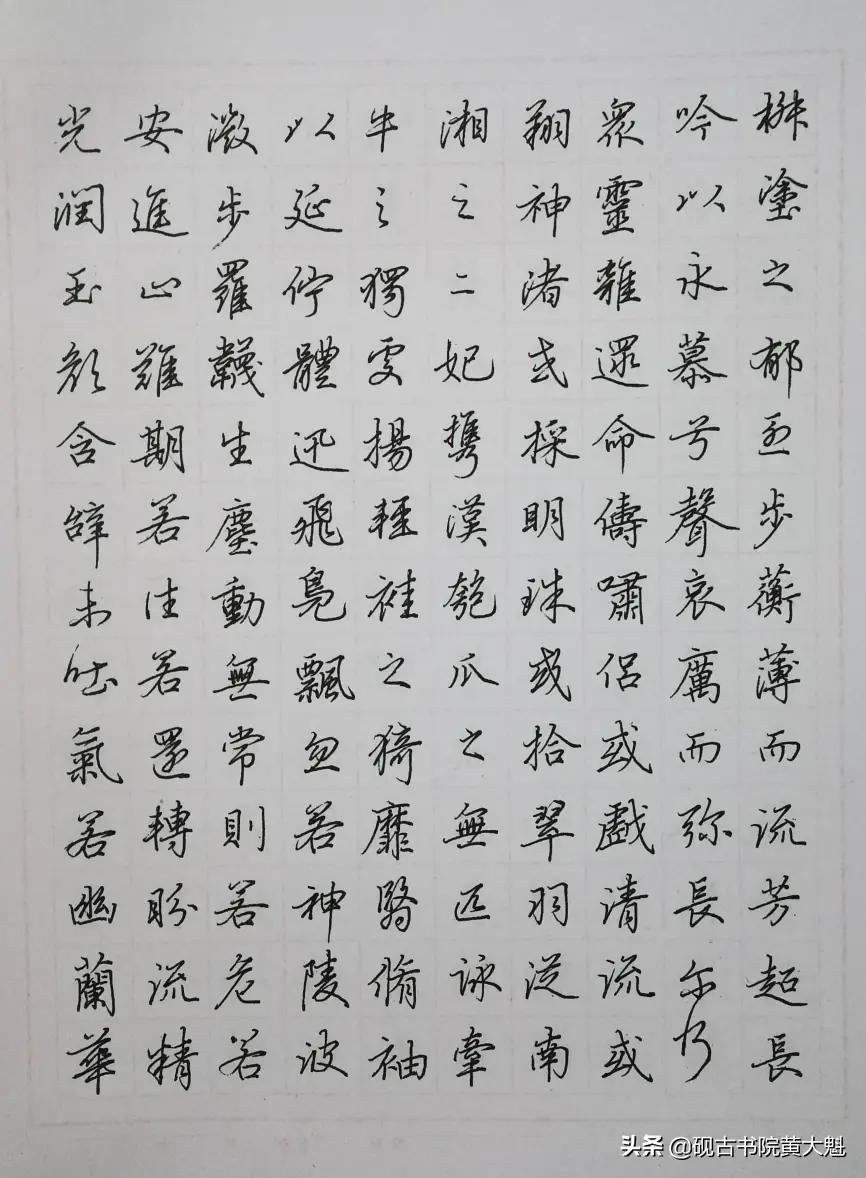 椒塗之郁烈步蘅薄而流芳超長
吟以永慕兮聲哀厲而弥長尓乃
眾靈雜遝命儔嘯侶或戲清流或
翔神渚或採明珠或拾翠羽從南
湘之二妃攜漢匏瓜之無匹詠牽
牛之獨處揚輕袿之猗靡翳脩袖
以延佇體迅飛鳧飄忽若神陵波
微步羅韈生塵動無常則若危若
安進止難期若往若還轉盼流精
光潤玉顏含辭未吐氣若幽蘭華
头条 @砚古书院黄大魁